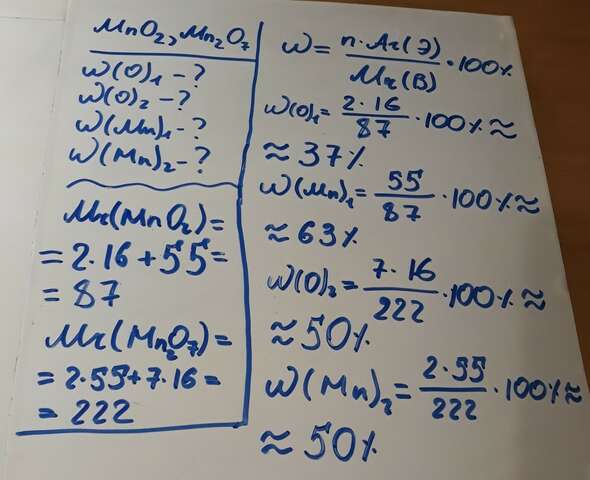 MnO₂, Mn₂O₇
ω(O)₁ - ?
ω(O)₂ - ?
ω(Mn)₁ - ?
ω(Mn)₂ - ?
Mr(MnO₂) =
= 2·16 + 55 =
= 87
Mr(Mn₂O₇) =
= 2·55 + 7·16 =
= 222
ω = n·Ar(Э) / Mr(В) · 100%
ω(O)₁ = 2·16 / 87 · 100% ≈
≈ 37%
ω(Mn)₁ = 55 / 87 · 100% ≈
≈ 63%
ω(O)₂ = 7·16 / 222 · 100% ≈
≈ 50%
ω(Mn)₂ = 2·55 / 222 · 100% ≈
≈ 50%